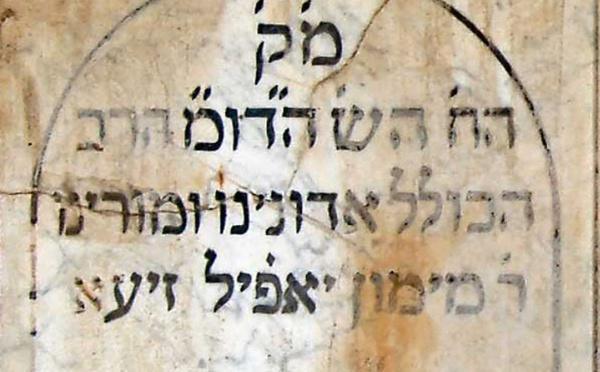 מ׳ק׳
הח׳ הש׳ הדומ״מ הרב
הכולל אדונינו ומורינו
ר׳ מימון יאפיל זיעא